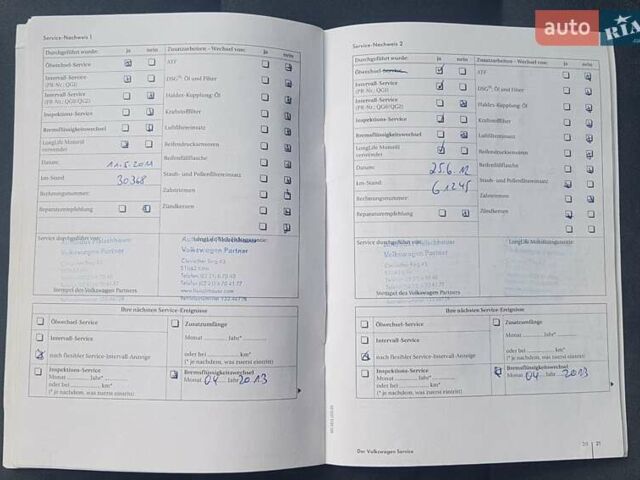 auto RIA
Service-Nachweis 1
Durchgeführt wurde: ja nein
Ölwechsel-Service
Intervall-Service
(PR-Nr.: QG1)
Intervall-Service
(PR-Nr.: QG0/QG2)
Inspektions-Service
Bremsflüssigkeitswechsel
LongLife Motoröl
verwendet
Datum: 11.5.2011
km-Stand: 30368
Rechnungsnummer:
Reparaturempfehlung
Zusatzarbeiten - Wechsel von: ja nein
ATF
DSG®: Öl und Filter
Haldex-Kupplung: Öl
Kraftstofffilter
Luftfiltereinsatz
Reifendrucksensoren
Reifenfüllflasche
Staub- und Pollenfiltereinsatz
Zahnriemen
Zündkerzen
Service durchgeführt von:
Volkswagen Partner
Stempel des Volkswagen Partners
Volkswagen Partner
Clevischer Ring 43
51063 Köln
Ihre nächsten Service-Ereignisse
Ölwechsel-Service
Intervall-Service
nach flexibler Service-Intervall-Anzeige
Inspektions-Service
Monat ........ Jahr* ........
oder bei ........ km*
(* je nachdem, was zuerst eintritt)
Zusatzumfänge
Monat ........ Jahr* ........
oder bei ........ km*
(* je nachdem, was zuerst eintritt)
Bremsflüssigkeitswechsel
Monat 04 Jahr 2013
Service-Nachweis 2
Durchgeführt wurde: ja nein
Ölwechsel-Service
Intervall-Service
(PR-Nr.: QG1)
Intervall-Service
(PR-Nr.: QG0/QG2)
Inspektions-Service
Bremsflüssigkeitswechsel
LongLife Motoröl
verwendet
Datum: 25.6.12
km-Stand: 61245
Rechnungsnummer:
Reparaturempfehlung
Zusatzarbeiten - Wechsel von: ja nein
ATF
DSG®: Öl und Filter
Haldex-Kupplung: Öl
Kraftstofffilter
Luftfiltereinsatz
Reifendrucksensoren
Reifenfüllflasche
Staub- und Pollenfiltereinsatz
Zahnriemen
Zündkerzen
Service durchgeführt von:
Volkswagen Partner
Stempel des Volkswagen Partners
Ihre nächsten Service-Ereignisse
Ölwechsel-Service
Intervall-Service
nach flexibler Service-Intervall-Anzeige
Inspektions-Service
Monat ........ Jahr* ........
oder bei ........ km*
(* je nachdem, was zuerst eintritt)
Zusatzumfänge
Monat ........ Jahr* ........
oder bei ........ km*
(* je nachdem, was zuerst eintritt)
Bremsflüssigkeitswechsel
Monat 04 Jahr 2013
20 21
Der Volkswagen Service